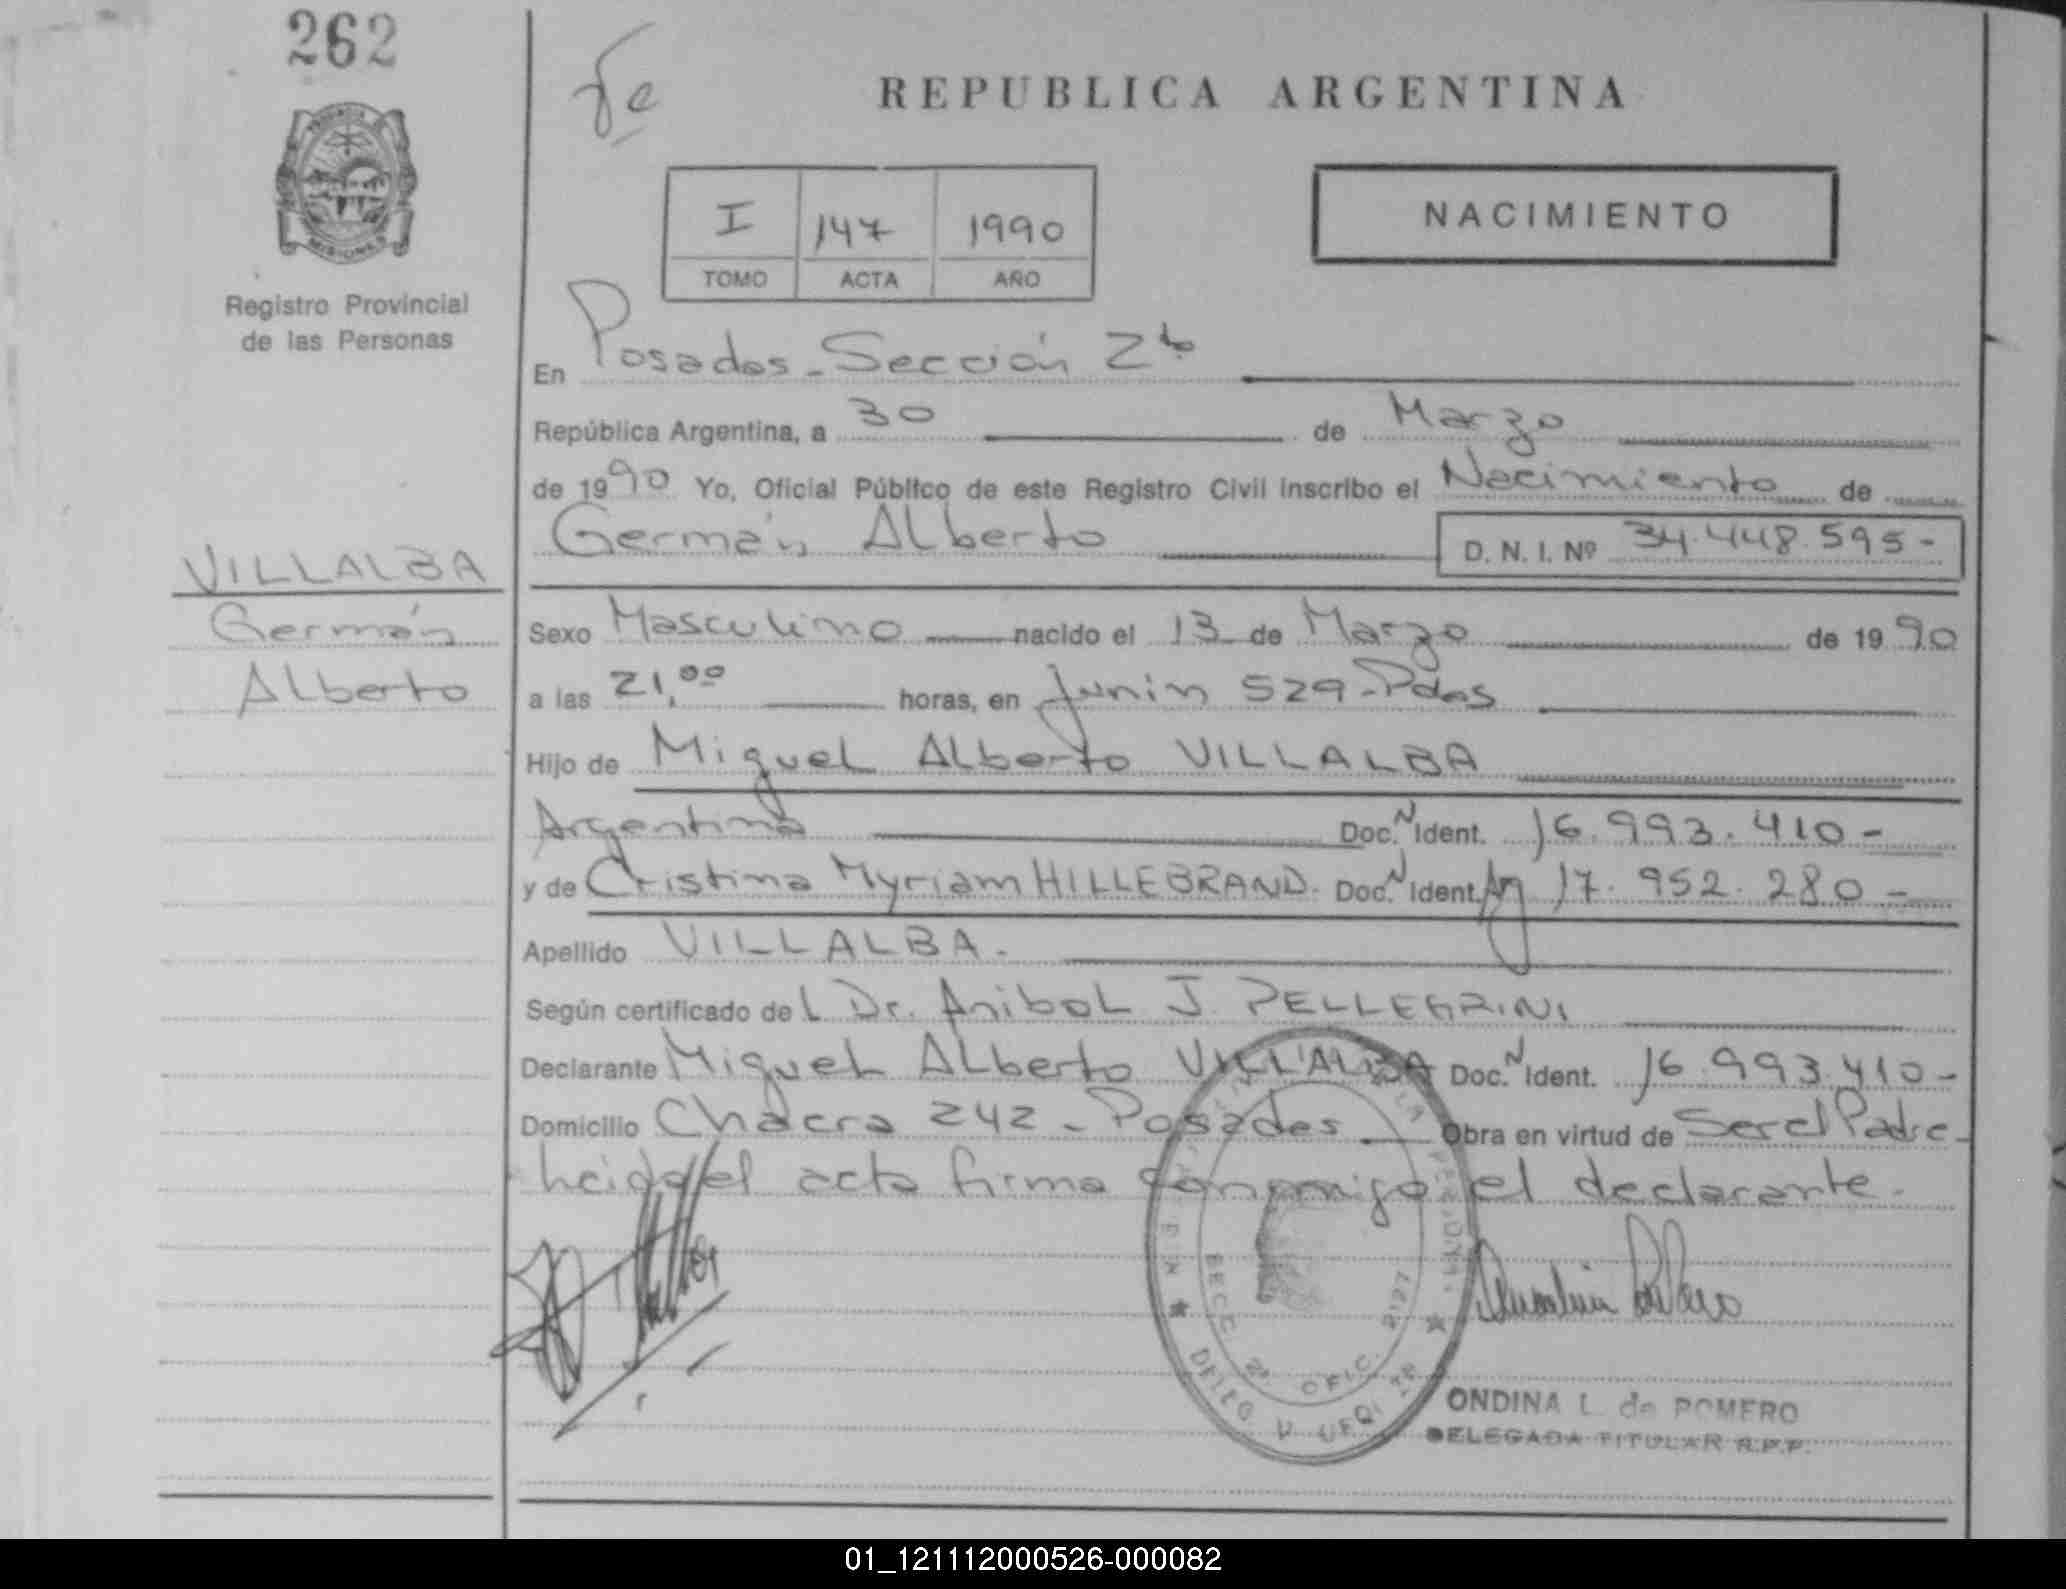 262
fe
REPUBLICA ARGENTINA
I 147 1990
TOMO ACTA AÑO
NACIMIENTO
MISIONES
Registro Provincial
de las Personas
En Posadas - Sección 2ª
República Argentina, a 30 de Marzo
de 1990 Yo, Oficial Público de este Registro Civil inscribo el Nacimiento de
Germán Alberto D. N. I. Nº 34.448.595-
VILLALBA
Germán
Alberto
Sexo Masculino nacido el 13 de Marzo de 1990
a las 21,00 horas, en Junin 529-Pdas
Hijo de Miguel Alberto VILLALBA
Argentina Doc. N Ident. 16.993.410-
y de Cristina Myriam HILLEBRAND. Doc. N Ident. Arg 17.952.280-
Apellido VILLALBA.
Según certificado del Dr. Anibal J. PELLEGRINI
Declarante Miguel Alberto VILLALBA Doc. N Ident. 16.993.410-
Domicilio Chacra 242 - Posadas Obra en virtud de Ser el Padre-
Leida el acta firma conmigo el declarante.
SECC 2ª OFIC. 2127
DELEG
ONDINA L. de ROMERO
DELEGADA TITULAR R.P.P.
01_121112000526-000082